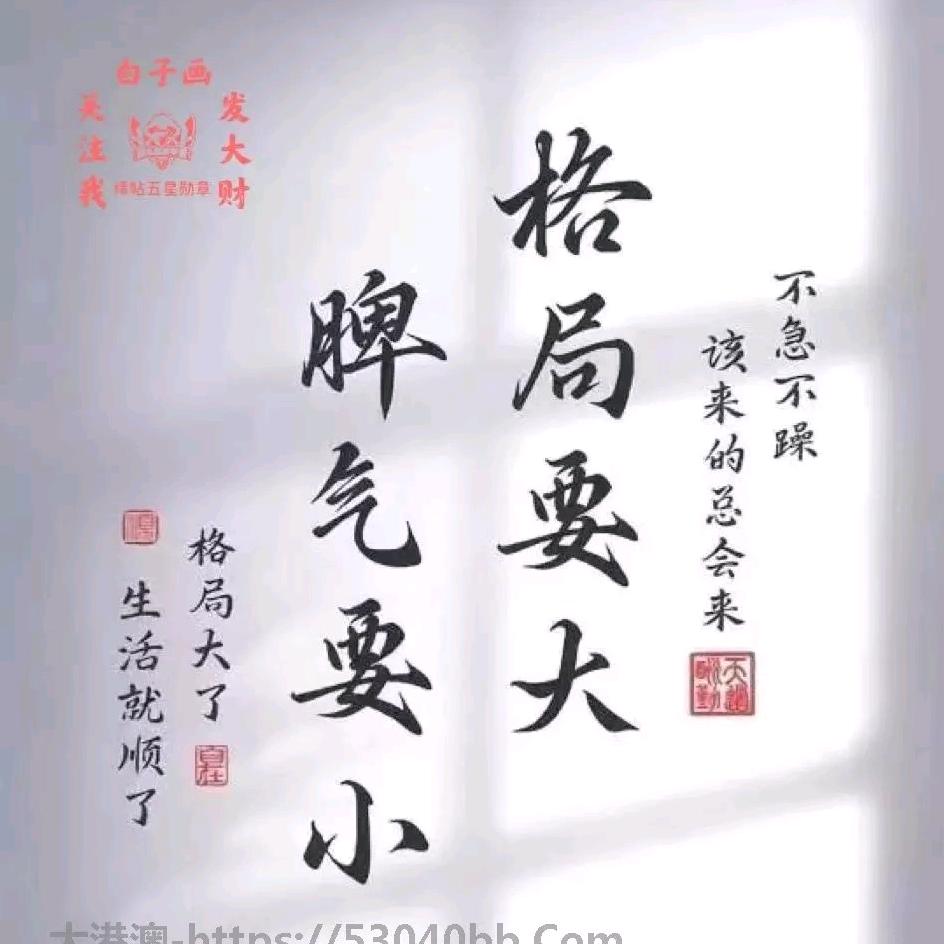 不急不躁
该来的总会来
天道酬勤
格局要大
脾气要小
格局大了
自在
生活就顺了
白子画
关注我
发大财
五星勋章
大港澳-https://53040bb.Com